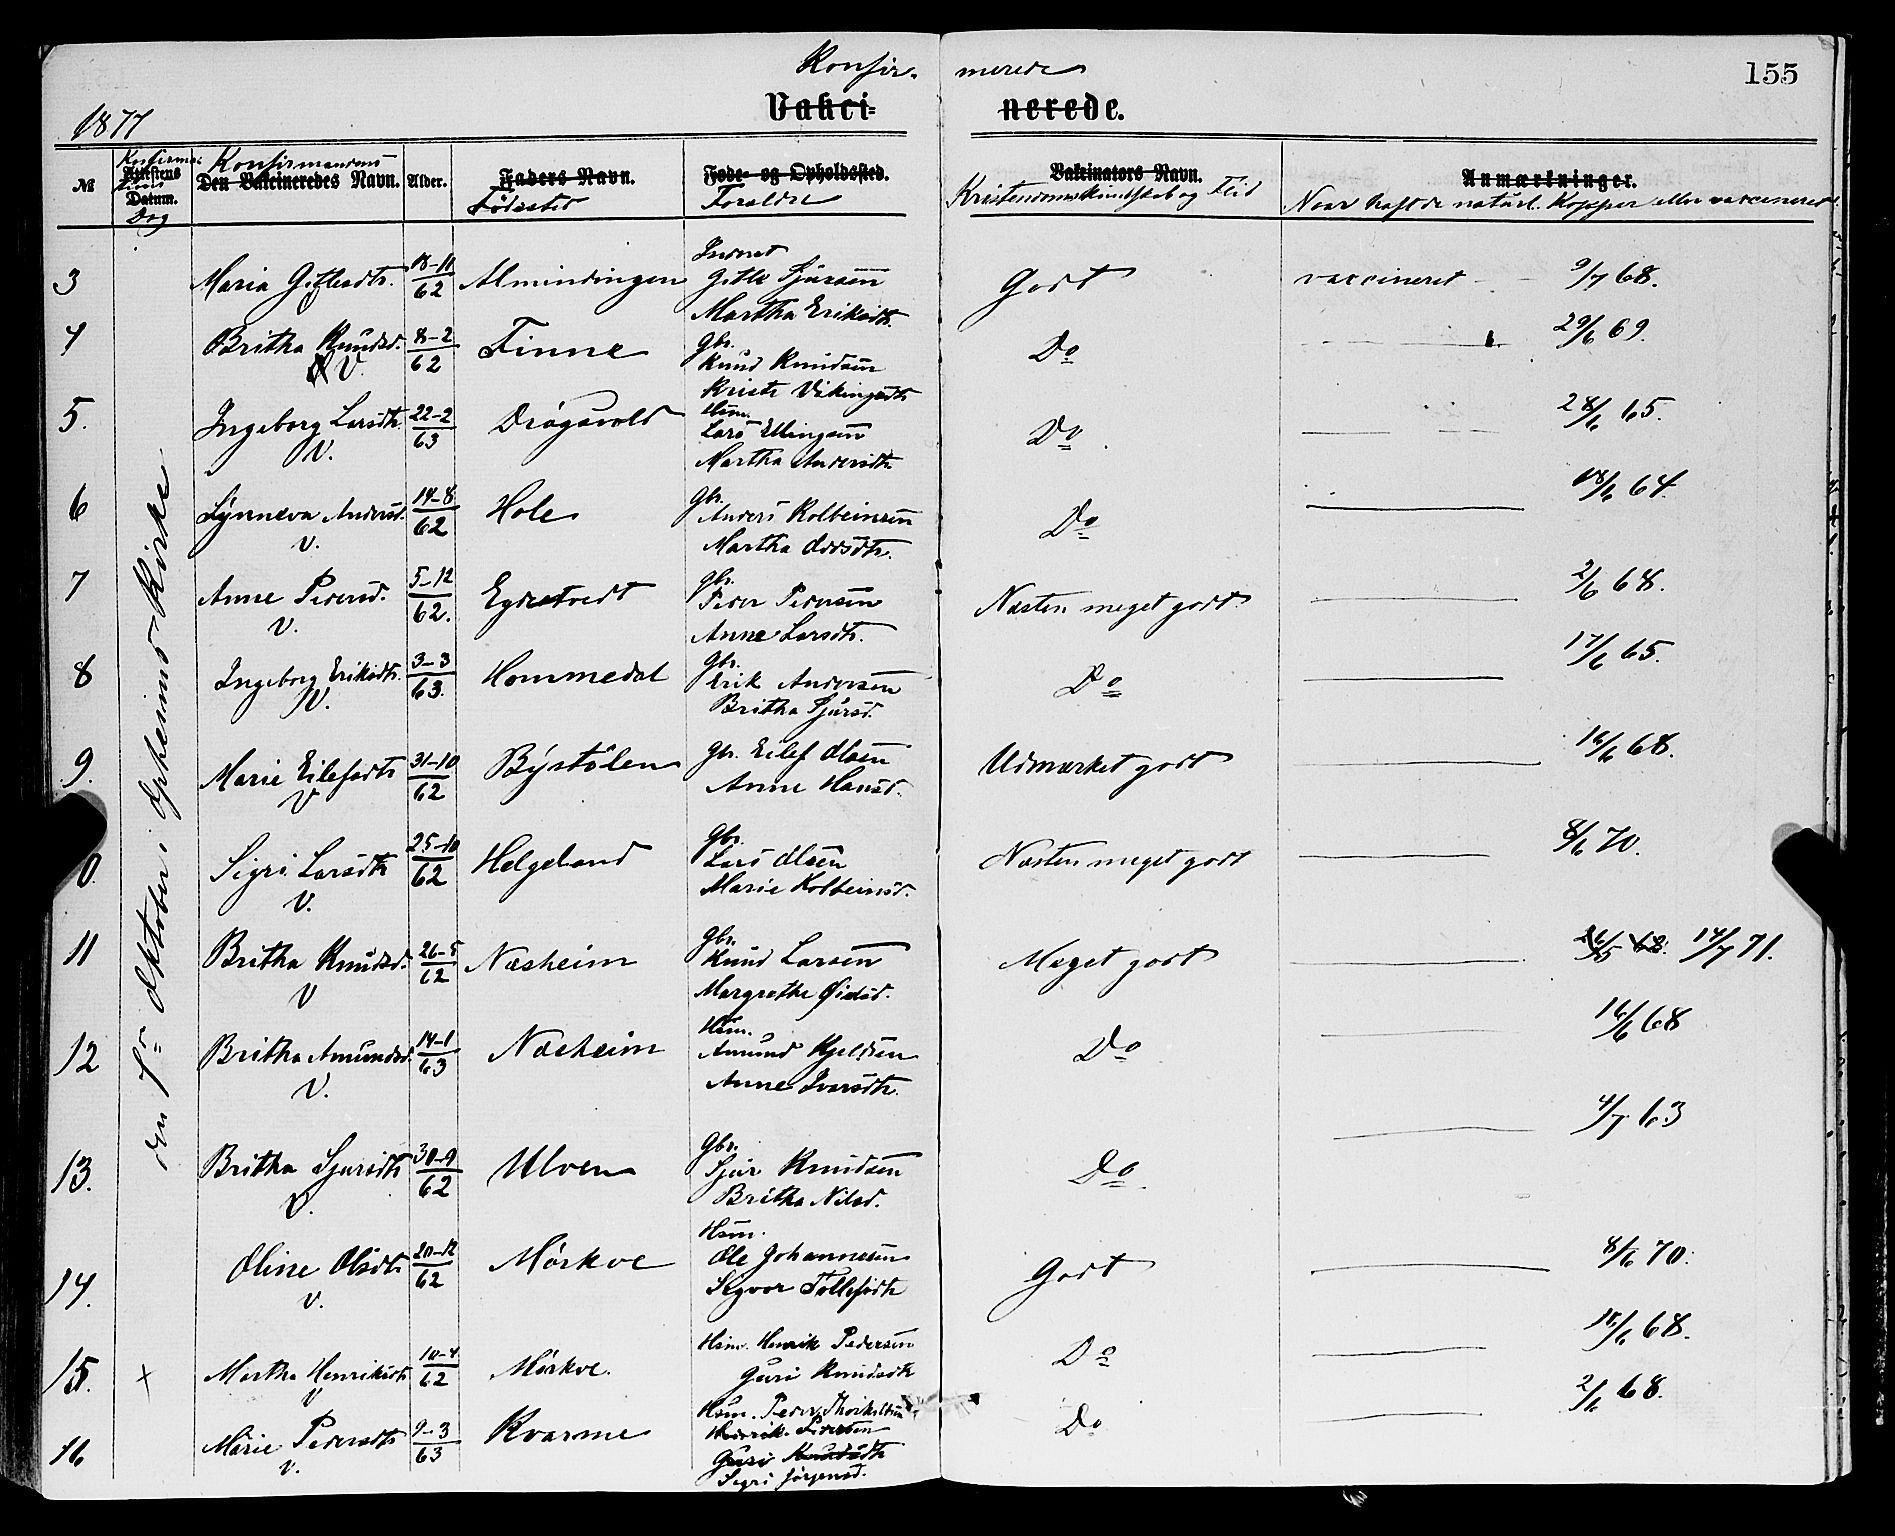 Konfir- merede
155
1877
Vakci- nerede.
№ Konfirma-tions Dag Attestens Datum. Konfirmandens Den Vakcineredes Navn. Alder. Faders Navn. Fødested Føde- og Opholdssted. Forældre Vakcinators Navn. Kristendomskundskab og Flid Anmærkninger. Naar havde naturl. Kopper eller vaccineret.
den 7de Oktober i Opheims Kirke
3 Maria Gitlesdtr. 18-11/62 Almindingen Inderst
Gitle Sjursen
Martha Eriksdtr. Godt vaccineret 9/7 68.
4 Britha Knudsd. V. 8-2/62 Finne Gbr.
Knud Knudsen
Kristi Vikingsdtr Do 29/6 69.
5. Ingeborg Larsdtr. V. 22-2/63 Drøgsvold Hsm.
Lars Ellingsen
Martha Andersdtr Do 28/6 65.
6 Synneva Andersd. V. 14-8/62 Hole Gbr.
Anders Kolbeinsen
Martha Larsdtr. Do 18/6 64.
7 Anne Pedersd. V. 5-12/62. Egdetvedt Gbr.
Peder Pedersen
Anne Larsdtr. Næsten meget godt 2/6 68.
8 Ingeborg Eriksdtr. V. 3-3/63. Hommedal Gbr.
Erik Andersen
Britha Sjursd. Do 17/6 65.
9. Marie Eilefsdtr V 31-10/62 Bystølen Gbr. Eilef Olsen
Anne Hansd. Udmærket godt 16/6 68.
0. Sigri Larsdtr V. 25-10/62 Helgeland Gbr.
Lars Olsen
Marie Kolbeinsd. Næsten meget godt 8/6 70.
11 Britha Knudsd. V 26-5/62 Næsheim Gbr.
Knud Larsen
Margrethe Øidsd. Meget godt 26/5 68. 14/7 71.
12 Britha Amundsd. V. 14-1/63 Næsheim Hsm.
Amund Kjeldsen
Anne Ivarsdtr. Do 16/6 68
13. Britha Sjursdtr V. 30-9/62 Ulven Gbr.
Sjur Knudsen
Britha Nilsd. Do 4/7 63
14. Oline Olsdtr V. 20-12/62 Mørkve Hsm.
Ole Johannessen
Sygvor Tollefsdtr Godt 8/6 70.
15. × Martha Henriksdtr V 10-4/62 Mørkve. Hsm. Henrik Pedersen
Guri Knudsdtr Do 18/6 68.
16 Marie Pedersdtr V. 9-3/63 Kvarme Hsm. Peder Thorkelsen
Henrik Pedersen
Guri Knudsdtr
Sigri Jørgensd. Do 2/6 68.